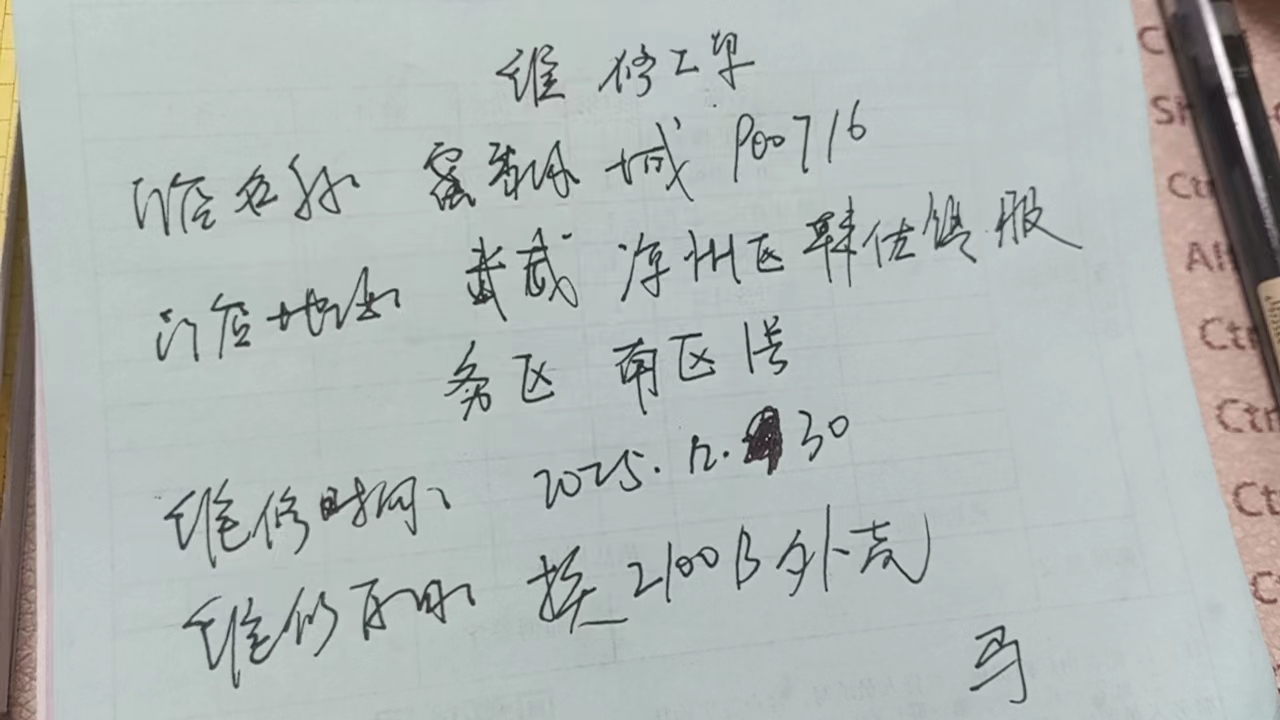 维修工单
门店名称 蜜雪冰城 P00716
门店地址 武威 凉州区 韩佐镇 服
务区 南区1号
维修时间: 2025.12. 30
维修 换2100B外壳
Ctr
Alt
Ctr
Ctr
Ct
C